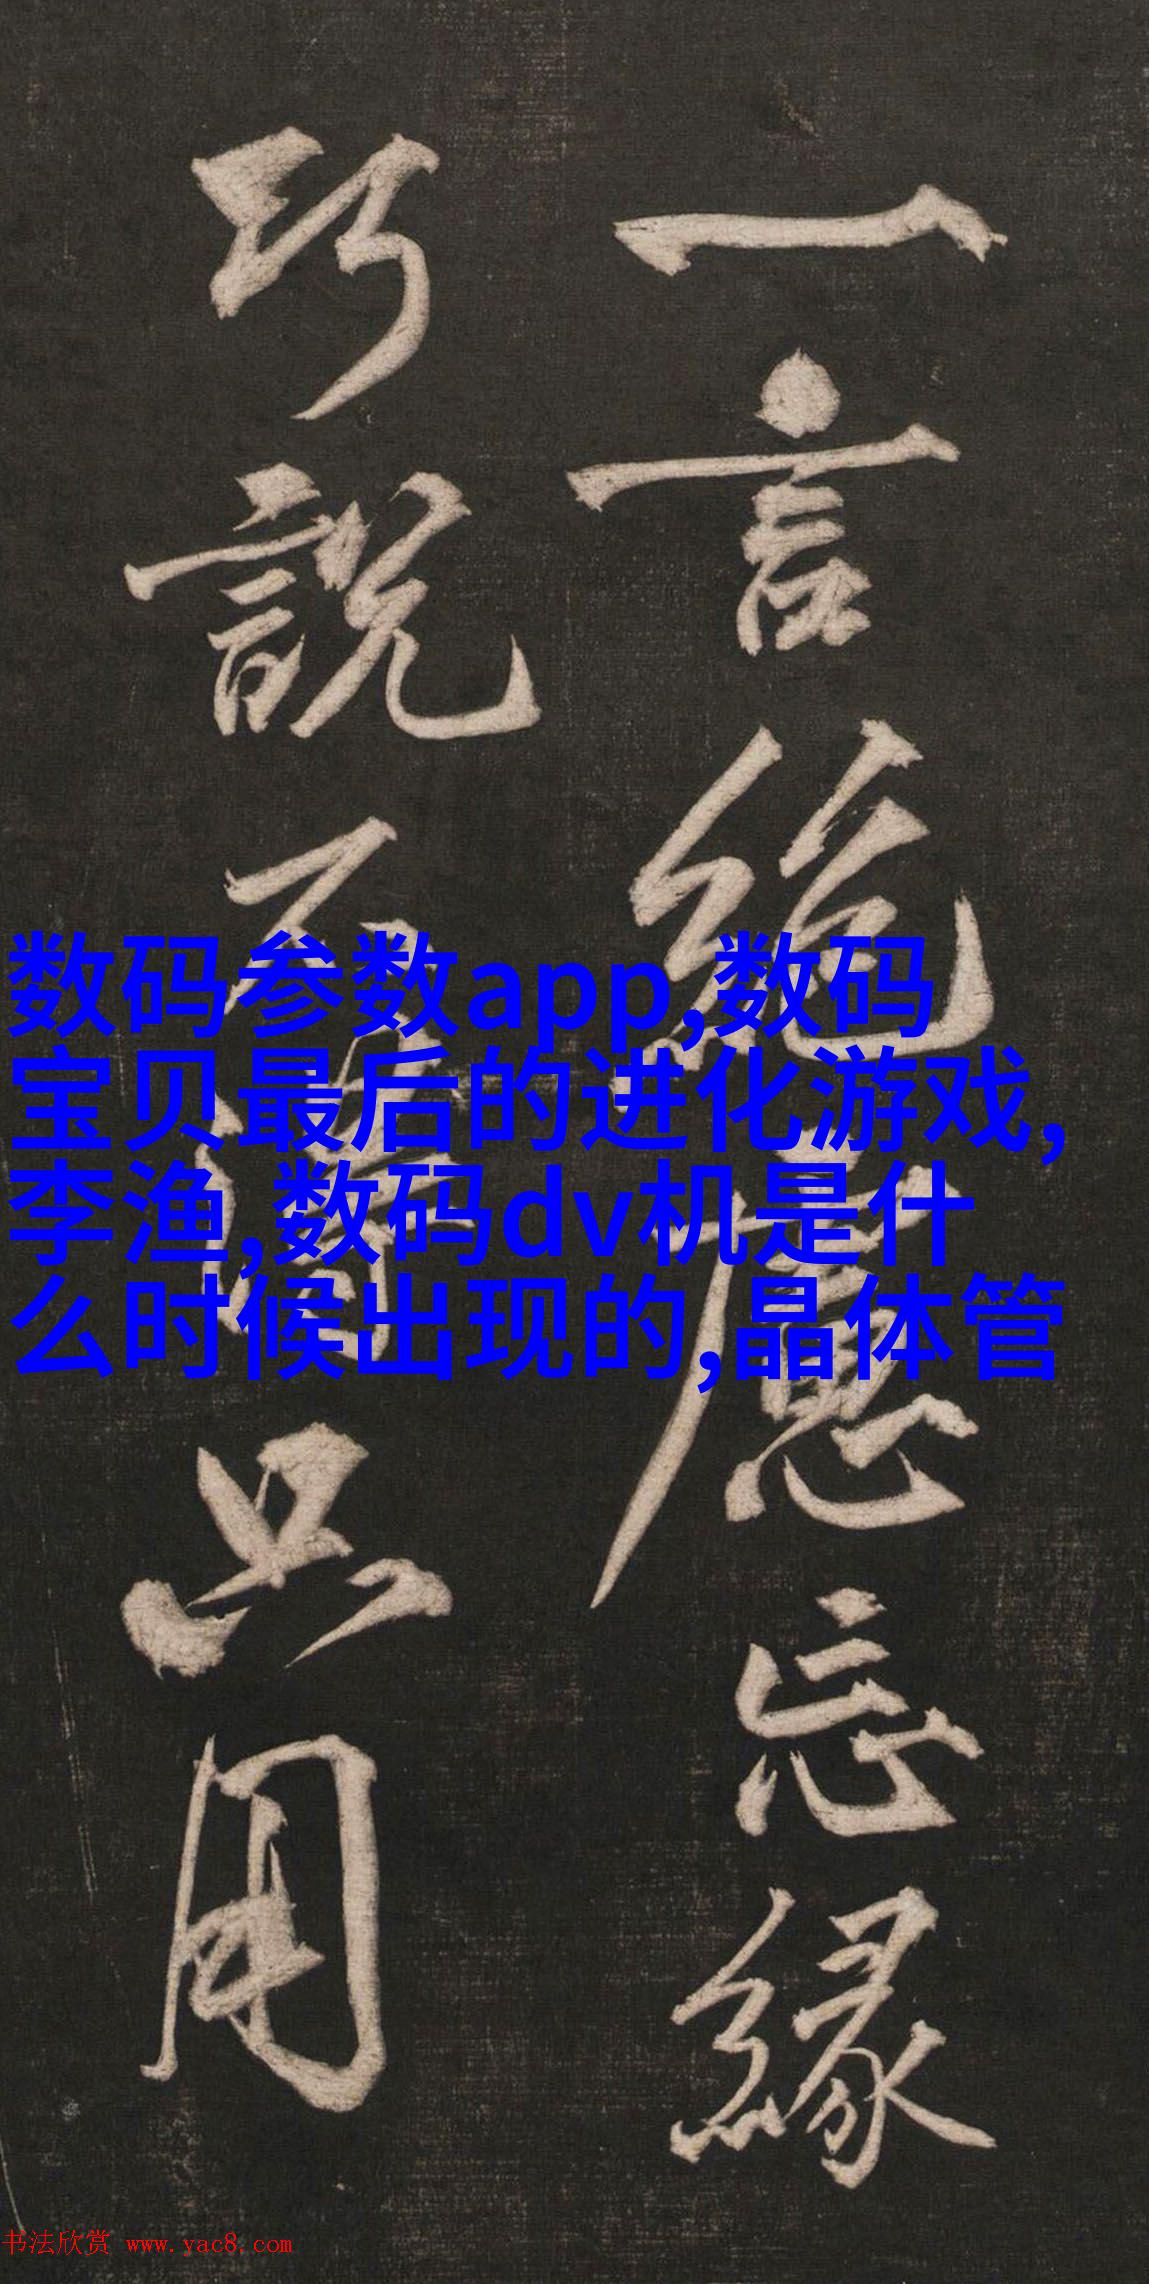 一言絶慮忘緣
巧說不得只用
数码参数app,数码
宝贝最后的进化游戏,
李渔,数码dv机是什
么时候出现的,晶体管
书法欣赏 www.yac8.com